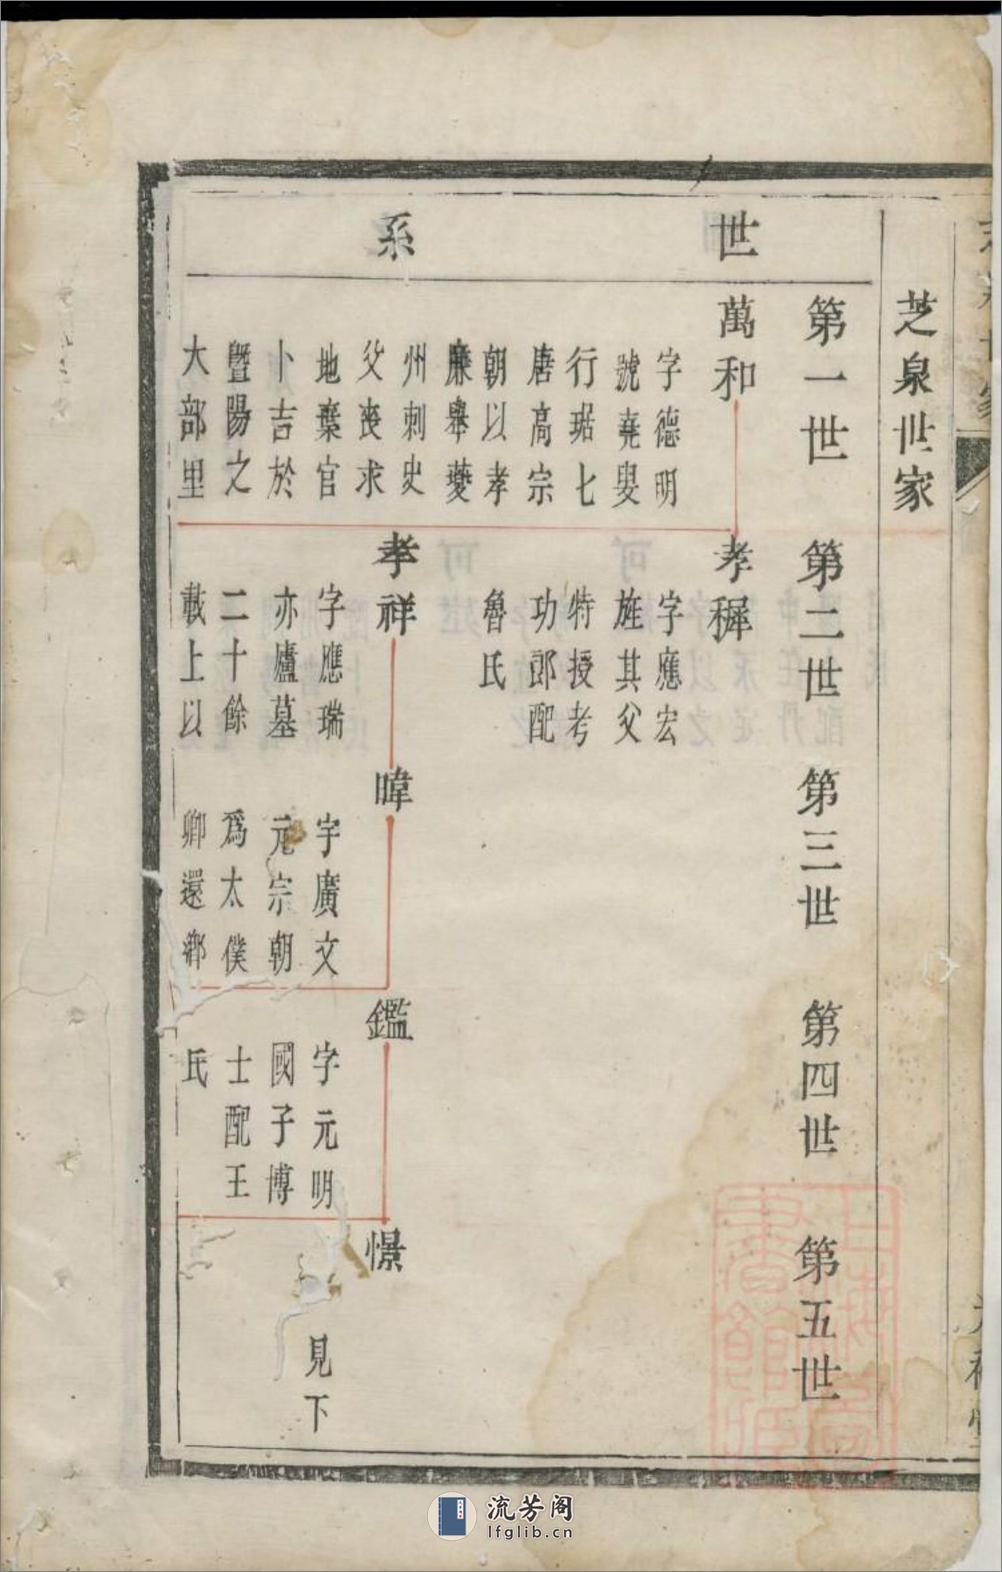 芝泉世家
世系
第一世
第二世
第三世
第四世
第五世
萬和
字德明
號堯叟
行琚七
唐高宗
朝以孝
廉舉夔
州刺史
父喪求
地棄官
卜吉於
暨陽之
大部里
孝穉
字應宏
旌其父
特授考
功郎配
魯氏
孝祥
字應瑞
亦廬墓
二十餘
載上以
暐
字廣文
元宗朝
爲太僕
卿還鄉
鑑
字元明
國子博
士配王
氏
憬
見下
流芳阁
lfglib.cn